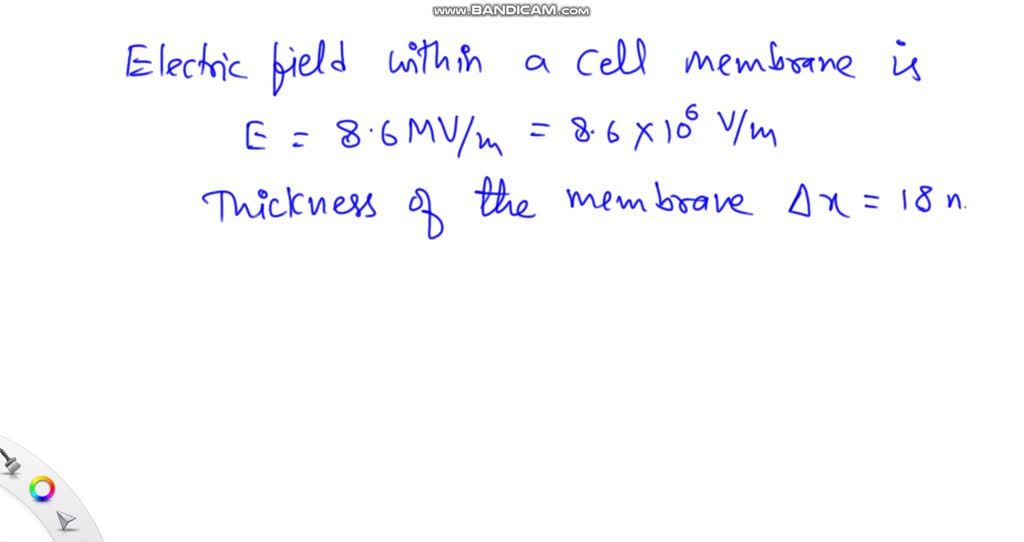 www.BANDICAM.com
Electric field within a cell membrane is
E = 8.6 MV/m = 8.6 × 10⁶ V/m
Thickness of the membrave Δx = 18 n.